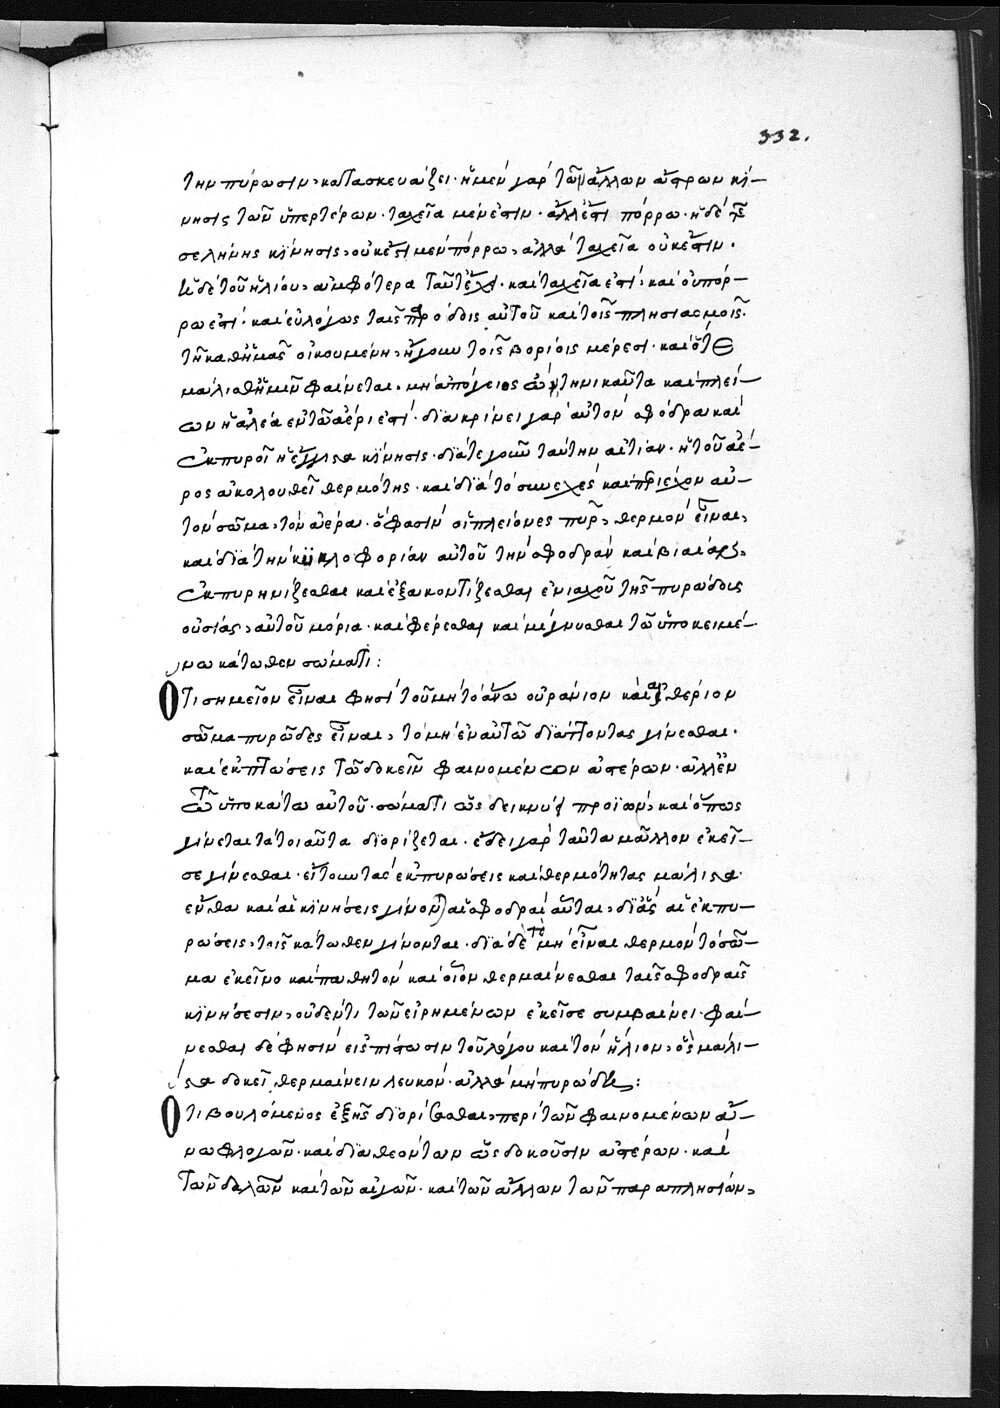 332.
τὴν πύρωσιν, κατασκευάζει· ἡ μὲν γὰρ τῶν ἄλλων ἄστρων κί-
νησις τῶν ὑπερτέρων· ταχεῖα μέν ἐστιν· ἀλλ' ἔστι πόρρω· ἡ δὲ τῆς
σελήνης κίνησις, οὐκ ἔστι μὲν πόρρω, ἀλλὰ ταχεῖα οὐκ ἔστιν·
ἡ δὲ τοῦ ἡλίου, ἀμφότερα ταῦτ' ἔχει· καὶ ταχεῖα ἐστὶ, καὶ οὐ πόρ-
ρω ἐστί· καὶ εὐλόγως ταῖς προόδοις αὐτοῦ καὶ τοῖς πλησιασμοῖς
τῇ καθ' ἡμᾶς οἰκουμένῃ, ἤγουν τοῖς βορίοις μέρεσι· καὶ ὅτε
μάλιστα ἡμῖν φαίνεται· μὴ ἀπόγειος ὢν τηνικαῦτα καὶ πλεί-
ων ἡ ἀλέα ἐν τῷ ἀέρι ἐστί· διακρίνει γὰρ αὐτὸν σφόδρα καὶ
ἐκπυροῖ ἡ ἔγγιστα κίνησις· διά τε γοῦν ταύτην αἰτίαν· ἡ τοῦ ἀέ-
ρος ἀκολουθεῖ θερμότης· καὶ διὰ τὸ συνεχὲς καὶ περιέχον αὐ-
τὸν σῶμα, τὸν ἀέρα· ὅ φασὶν οἱ πλείονες πῦρ, θερμὸν εἶναι,
καὶ διὰ τὴν κυκλοφορίαν αὐτοῦ τὴν σφοδρὰν καὶ βίαιον,
ἐκπυρηνίζεσθαι καὶ ἐξακοντίζεσθαι ἐνιαχοῦ τῆς πυρώδους
οὐσίας, αὐτοῦ μόρια· καὶ φέρεσθαι καὶ μίγνυσθαι τῷ ὑποκειμέ-
νω κάτωθεν σώματι:
Ὅτι σημεῖον εἶναι φησὶ τοῦ μὴ τὸ ἄνω οὐράνιον καὶ αἰθέριον
σῶμα πυρῶδες εἶναι, τὸ μὴ ἐν αὐτῷ διάττοντας γίνεσθαι·
καὶ ἐκπτώσεις τῶν δοκεῖν φαινομένων ἀστέρων· ἀλλ' ἐν
τῷ ὑποκάτω αὐτοῦ σώματι ὡς δείκνυσι προϊών· καὶ ὅπως
γίνεται τὰ τοιαῦτα διορίζεται· ἔδει γὰρ ταῦτα μᾶλλον ἐκεῖ-
σε γίνεσθαι· εἴτουν τὰς ἐκπυρώσεις καὶ θερμότητας μάλιστα
ἔνθα καὶ αἱ κινήσεις γίνονται αἱ σφοδραὶ αὗται, δι' ἃς αἱ ἐκπυ-
ρώσεις, τοῖς κάτωθεν γίνονται· διὰ δὲ τὸ μὴ εἶναι θερμὸν τὸ σῶ-
μα ἐκεῖνο καὶ παθητὸν καὶ οἷον θερμαίνεσθαι ταῖς σφοδραῖς
κινήσεσιν, οὐδέν τι τῶν εἰρημένων ἐκεῖσε συμβαίνει· φαί-
νεσθαι δέ φησιν εἰς πίστωσιν τοῦ λόγου καὶ τὸν ἥλιον, ὃς μάλι-
στα δοκεῖ θερμαίνειν λευκόν· ἀλλὰ μὴ πυρώδης:
Ὅτι βουλόμενος ἑξῆς διορίσασθαι, περὶ τῶν φαινομένων ἄ-
νω φλογῶν· καὶ διαθεόντων ὡς δοκοῦσιν ἀστέρων· καὶ
τῶν δαλῶν καὶ τῶν αἰγῶν· καὶ τῶν ἄλλων τῶν παραπλησίων,